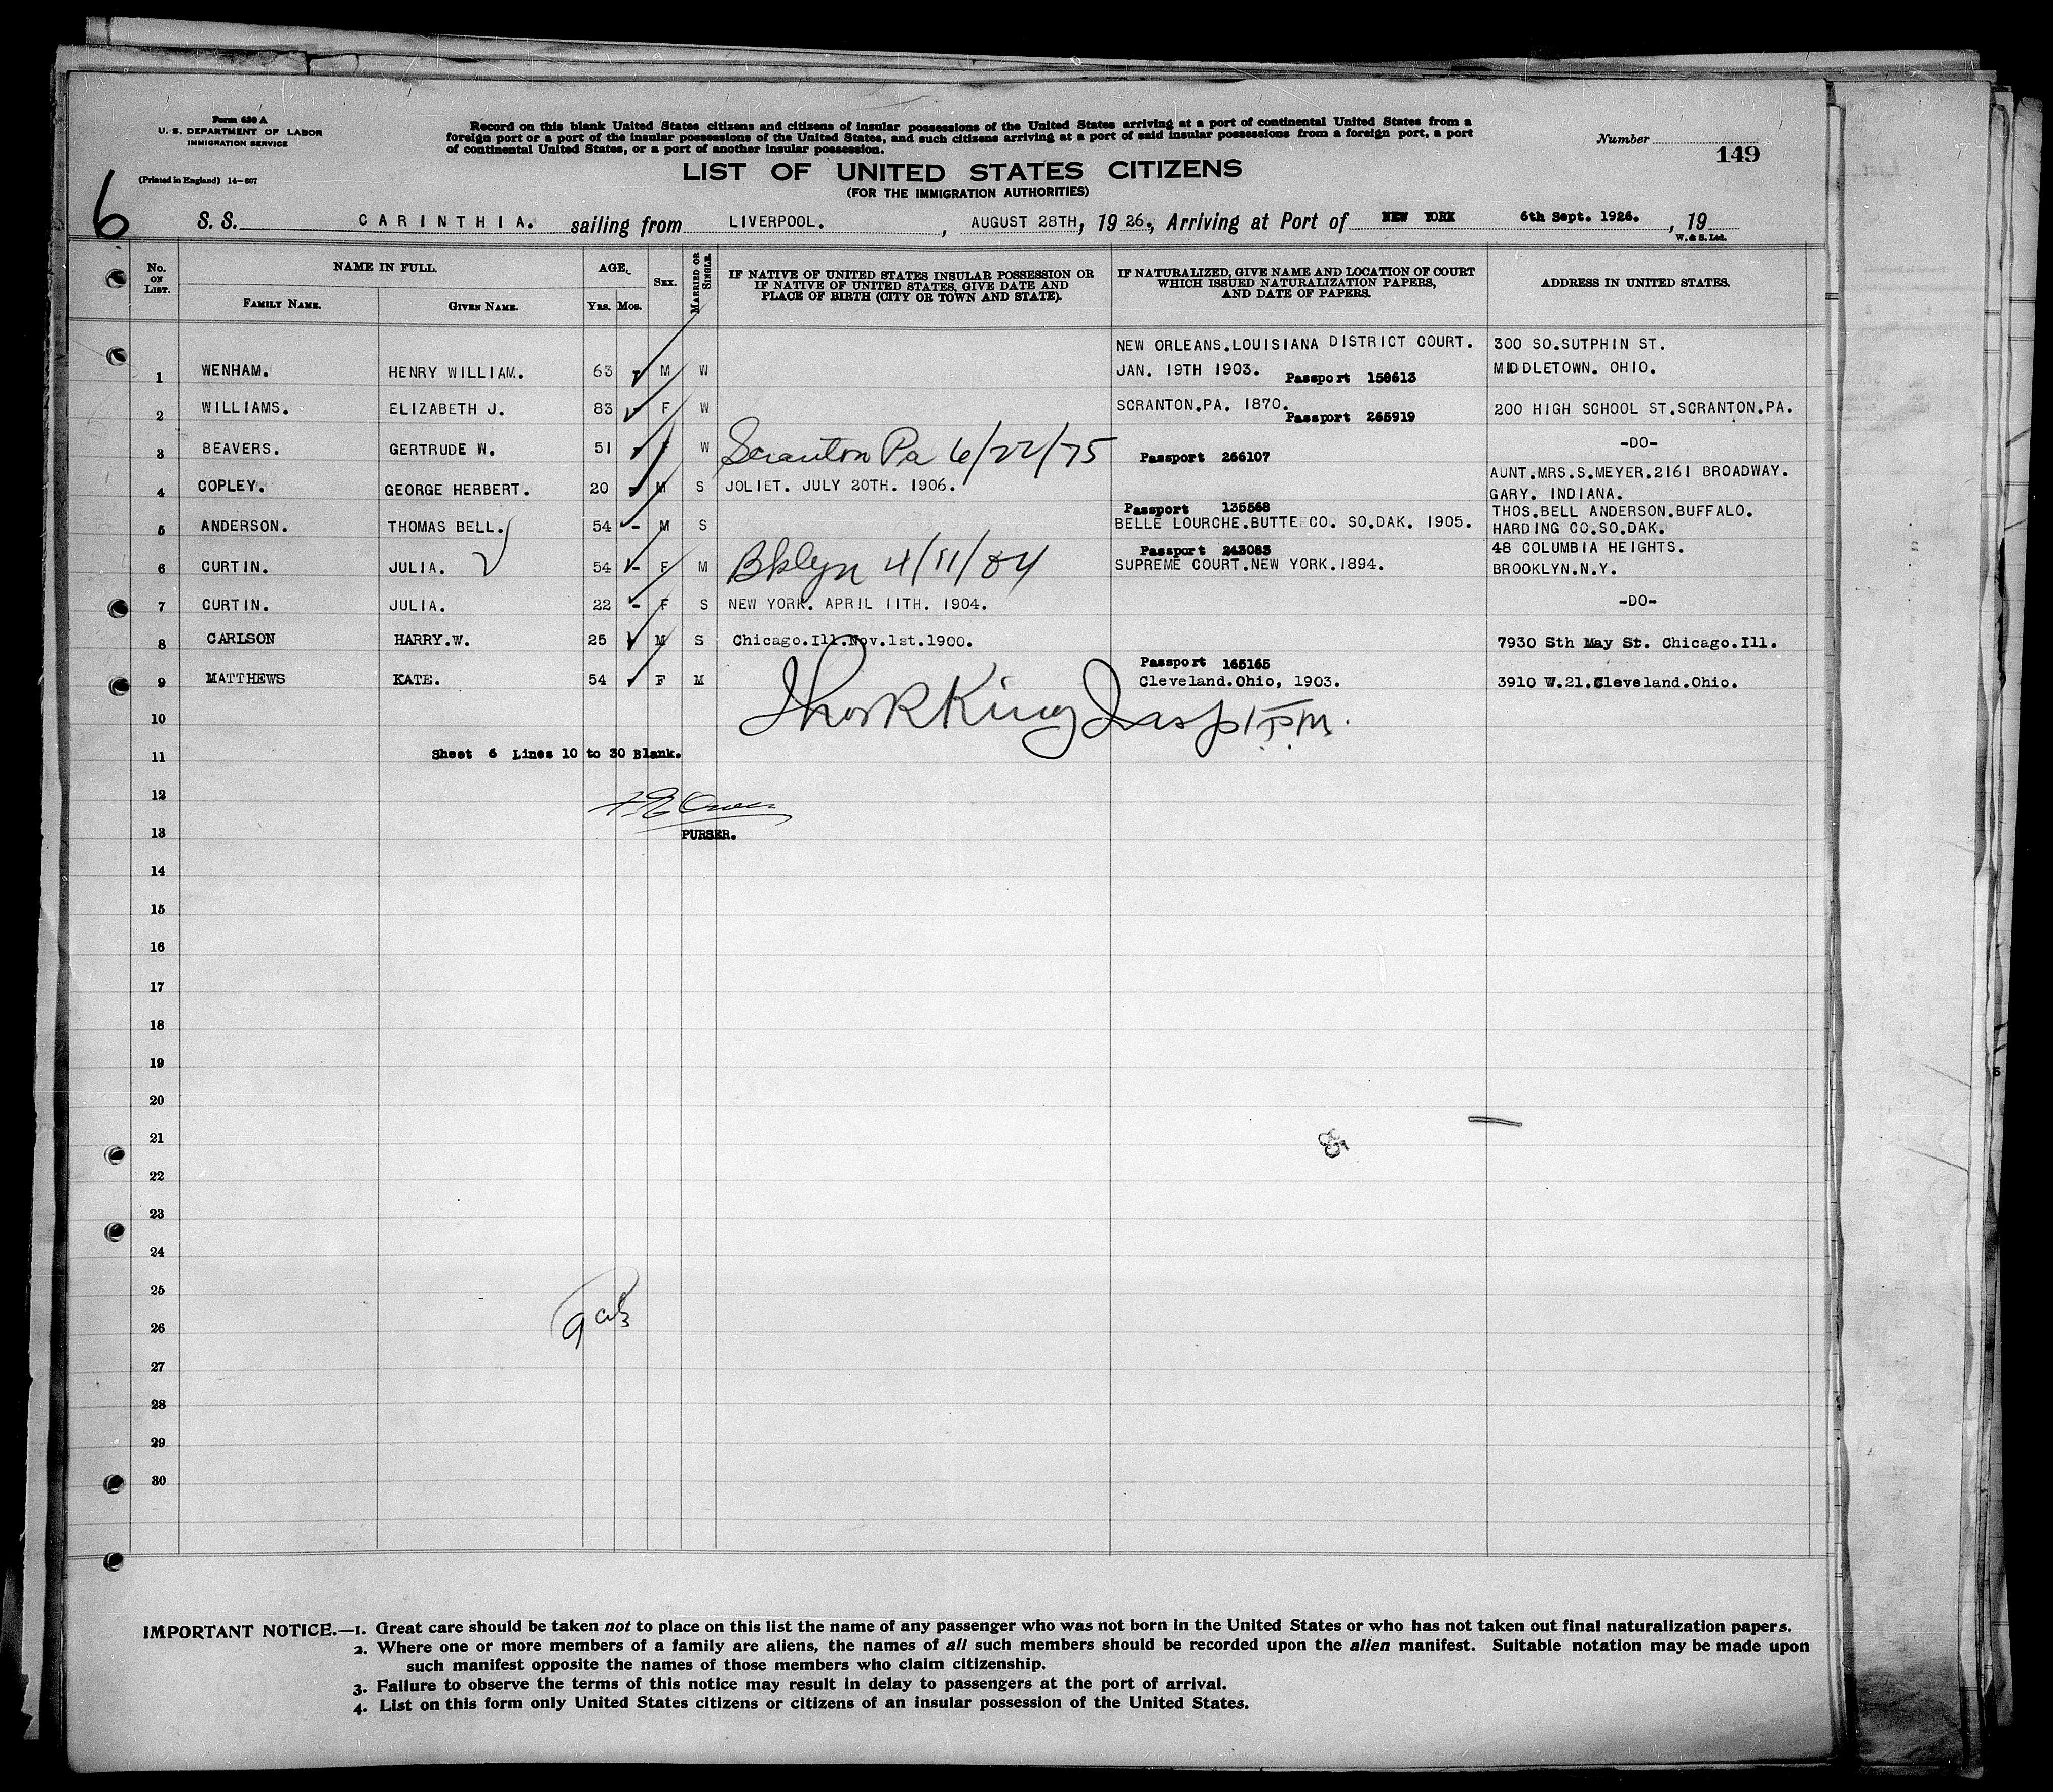 Form 630 A
U. S. DEPARTMENT OF LABOR
IMMIGRATION SERVICE
(Printed in England) 14—607
Record on this blank United States citizens and citizens of insular possessions of the United States arriving at a port of continental United States from a
foreign port or a port of the insular possessions of the United States, and such citizens arriving at a port of said insular possessions from a foreign port, a port
of continental United States, or a port of another insular possession.
Number
149
LIST OF UNITED STATES CITIZENS
(FOR THE IMMIGRATION AUTHORITIES)
6
S. S. CARINTHIA. sailing from LIVERPOOL. , AUGUST 28TH, 19 26., Arriving at Port of NEW YORK 6th Sept. 1926. , 19
W. & S. Ltd.
No. ON LIST. NAME IN FULL. AGE. SEX. MARRIED OR SINGLE. IF NATIVE OF UNITED STATES INSULAR POSSESSION OR IF NATIVE OF UNITED STATES, GIVE DATE AND PLACE OF BIRTH (CITY OR TOWN AND STATE). IF NATURALIZED, GIVE NAME AND LOCATION OF COURT WHICH ISSUED NATURALIZATION PAPERS, AND DATE OF PAPERS. ADDRESS IN UNITED STATES.
FAMILY NAME. GIVEN NAME. YRS. MOS.
NEW ORLEANS.LOUISIANA DISTRICT COURT. 300 SO.SUTPHIN ST.
1 WENHAM. HENRY WILLIAM. 63 - M W JAN. 19TH 1903. Passport 158613 MIDDLETOWN. OHIO.
2 WILLIAMS. ELIZABETH J. 83 - F W SCRANTON.PA. 1870. Passport 265919 200 HIGH SCHOOL ST.SCRANTON.PA.
3 BEAVERS. GERTRUDE W. 51 - F W Scranton Pa 6/22/75 Passport 266107 -DO-
AUNT.MRS.S.MEYER.2161 BROADWAY.
4 COPLEY. GEORGE HERBERT. 20 - M S JOLIET. JULY 20TH. 1906. GARY. INDIANA.
Passport 135568 THOS.BELL ANDERSON.BUFFALO.
5 ANDERSON. THOMAS BELL. 54 - M S BELLE LOURCHE.BUTTE CO. SO.DAK. 1905. HARDING CO.SO.DAK.
Passport 243083 48 COLUMBIA HEIGHTS.
6 CURTIN. JULIA. 54 - F M Bklyn 4/11/04 SUPREME COURT.NEW YORK.1894. BROOKLYN.N.Y.
7 CURTIN. JULIA. 22 - F S NEW YORK. APRIL 11TH. 1904. -DO-
8 CARLSON HARRY.W. 25 - M S Chicago.Ill.Nov.1st.1900. 7930 Sth May St. Chicago.Ill.
Passport 165165
9 MATTHEWS KATE. 54 - F M Cleveland.Ohio, 1903. 3910 W.21.Cleveland.Ohio.
10
11 Sheet 6 Lines 10 to 30 Blank.
12
13 PURSER.
14
15
16
17
18
19
20
21
22
23
24
25
26
27
28
29
30
IMPORTANT NOTICE.—1. Great care should be taken not to place on this list the name of any passenger who was not born in the United States or who has not taken out final naturalization papers.
2. Where one or more members of a family are aliens, the names of all such members should be recorded upon the alien manifest. Suitable notation may be made upon
such manifest opposite the names of those members who claim citizenship.
3. Failure to observe the terms of this notice may result in delay to passengers at the port of arrival.
4. List on this form only United States citizens or citizens of an insular possession of the United States.